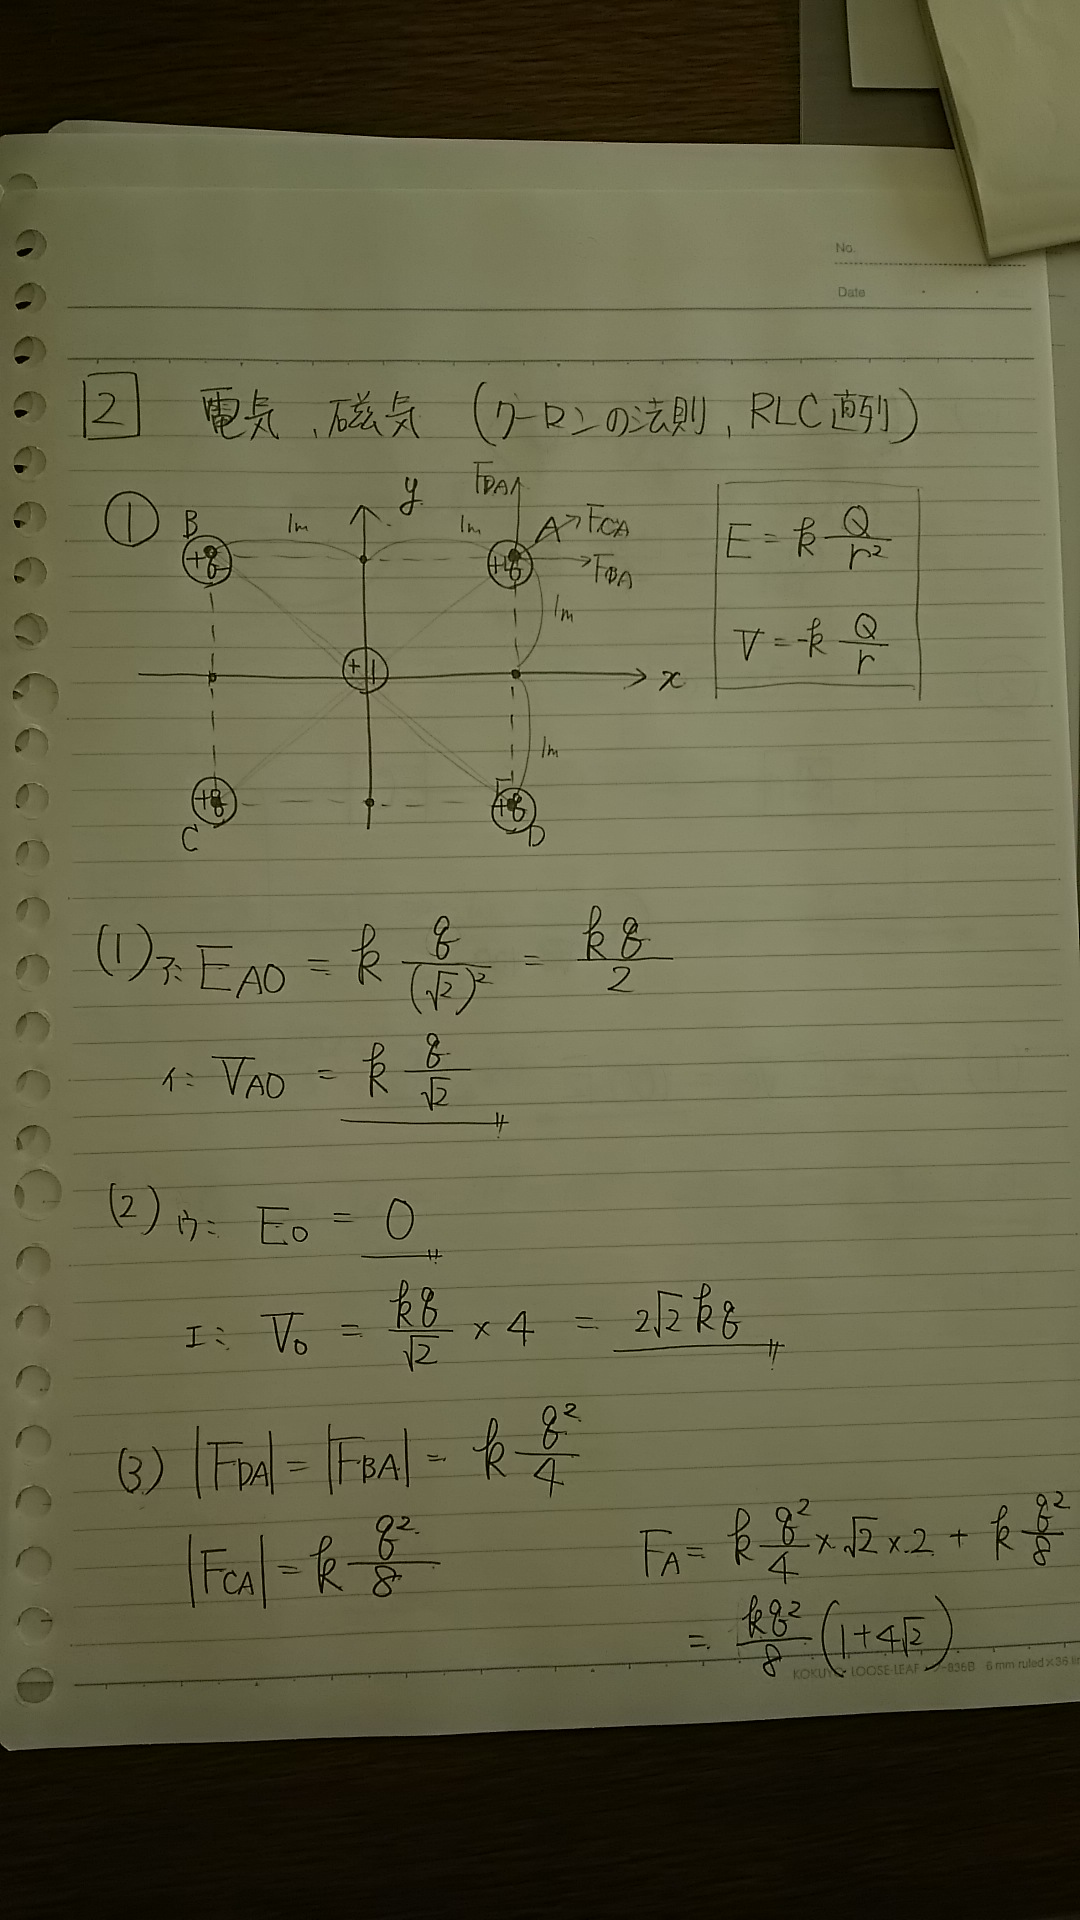 No.
Date
2 電気、磁気 (クーロンの法則, RLC直列)
① B 1m y 1m FDA A FCA
+q +q FBA
1m
+1 x
1m
+q +q
C D
E = k Q/r²
V = -k Q/r
(1) ア: EAO = k q/(√2)² = kq/2
イ: VAO = k q/√2
(2) ウ: E0 = 0
エ: V0 = kq/√2 × 4 = 2√2kq
(3) |FDA| = |FBA| = k q²/4
|FCA| = k q²/8
FA = k q²/4 × √2 × 2 + k q²/8
= kq²/8 (1+4√2)
LOOSE-LEAF -836B 6 mm ruled×36